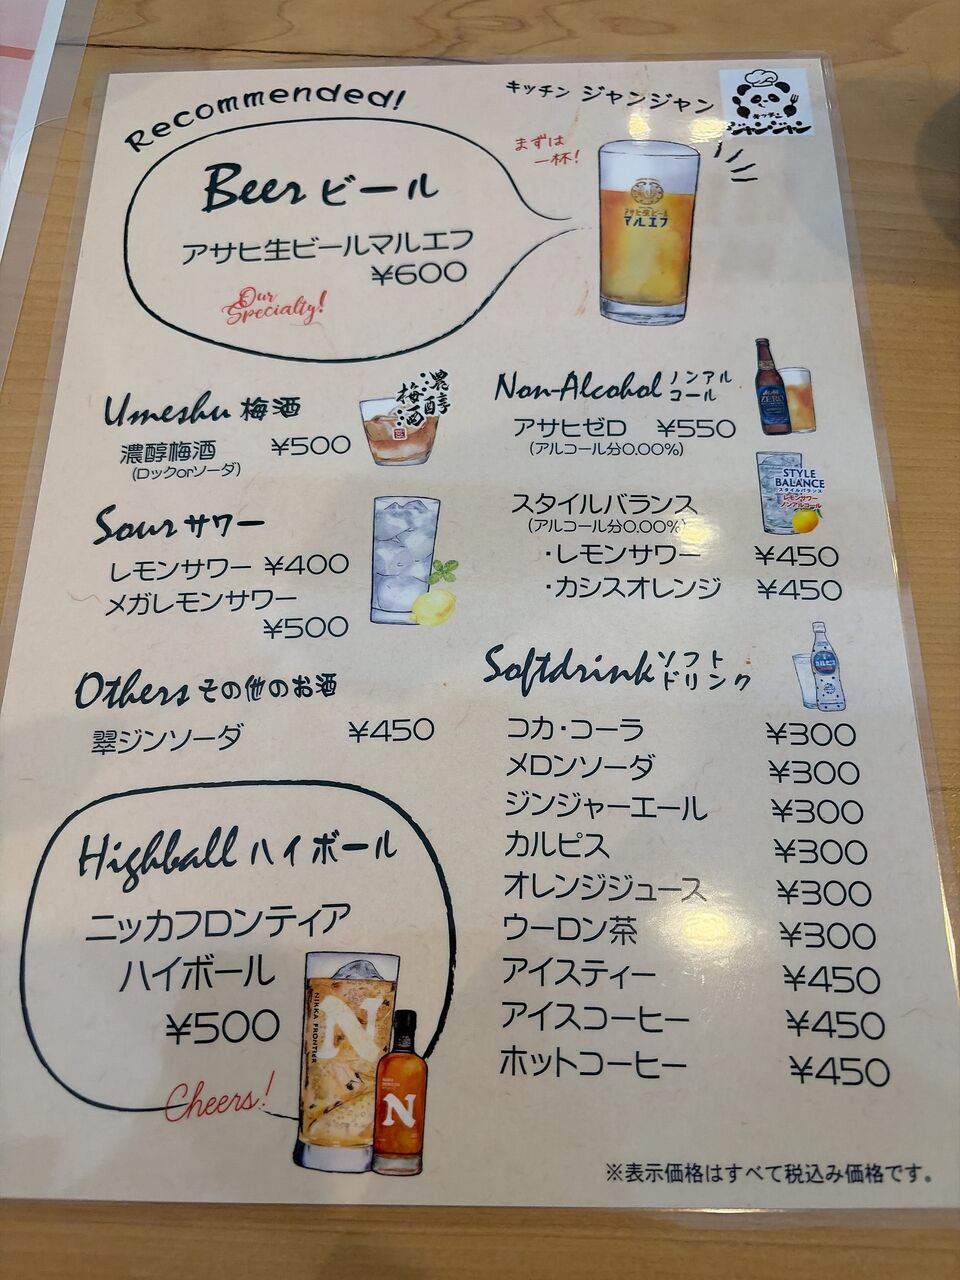 Recommended!
キッチン ジャンジャン
キッチン
ジャンジャン
まずは
一杯!
Beer ビール
アサヒ生ビールマルエフ
¥600
Our
Specialty!
アサヒ生ビール
マルエフ
Umeshu 梅酒
濃醇梅酒 ¥500
(ロックorソーダ)
濃醇
梅酒
Sour サワー
レモンサワー ¥400
メガレモンサワー
¥500
Others その他のお酒
翠ジンソーダ ¥450
Highball ハイボール
ニッカフロンティア
ハイボール
¥500
Cheers!
NIKKA FRONTIER
N
N
Non-Alcohol ノンアル
コール
アサヒゼロ ¥550
(アルコール分0.00%)
ZERO
スタイルバランス
(アルコール分0.00%)
・レモンサワー ¥450
・カシスオレンジ ¥450
STYLE
BALANCE
スタイルバランス
レモンサワー
ノンアルコール
Softdrink ソフト
ドリンク
カルピス
コカ・コーラ ¥300
メロンソーダ ¥300
ジンジャーエール ¥300
カルピス ¥300
オレンジジュース ¥300
ウーロン茶 ¥300
アイスティー ¥450
アイスコーヒー ¥450
ホットコーヒー ¥450
※表示価格はすべて税込み価格です。